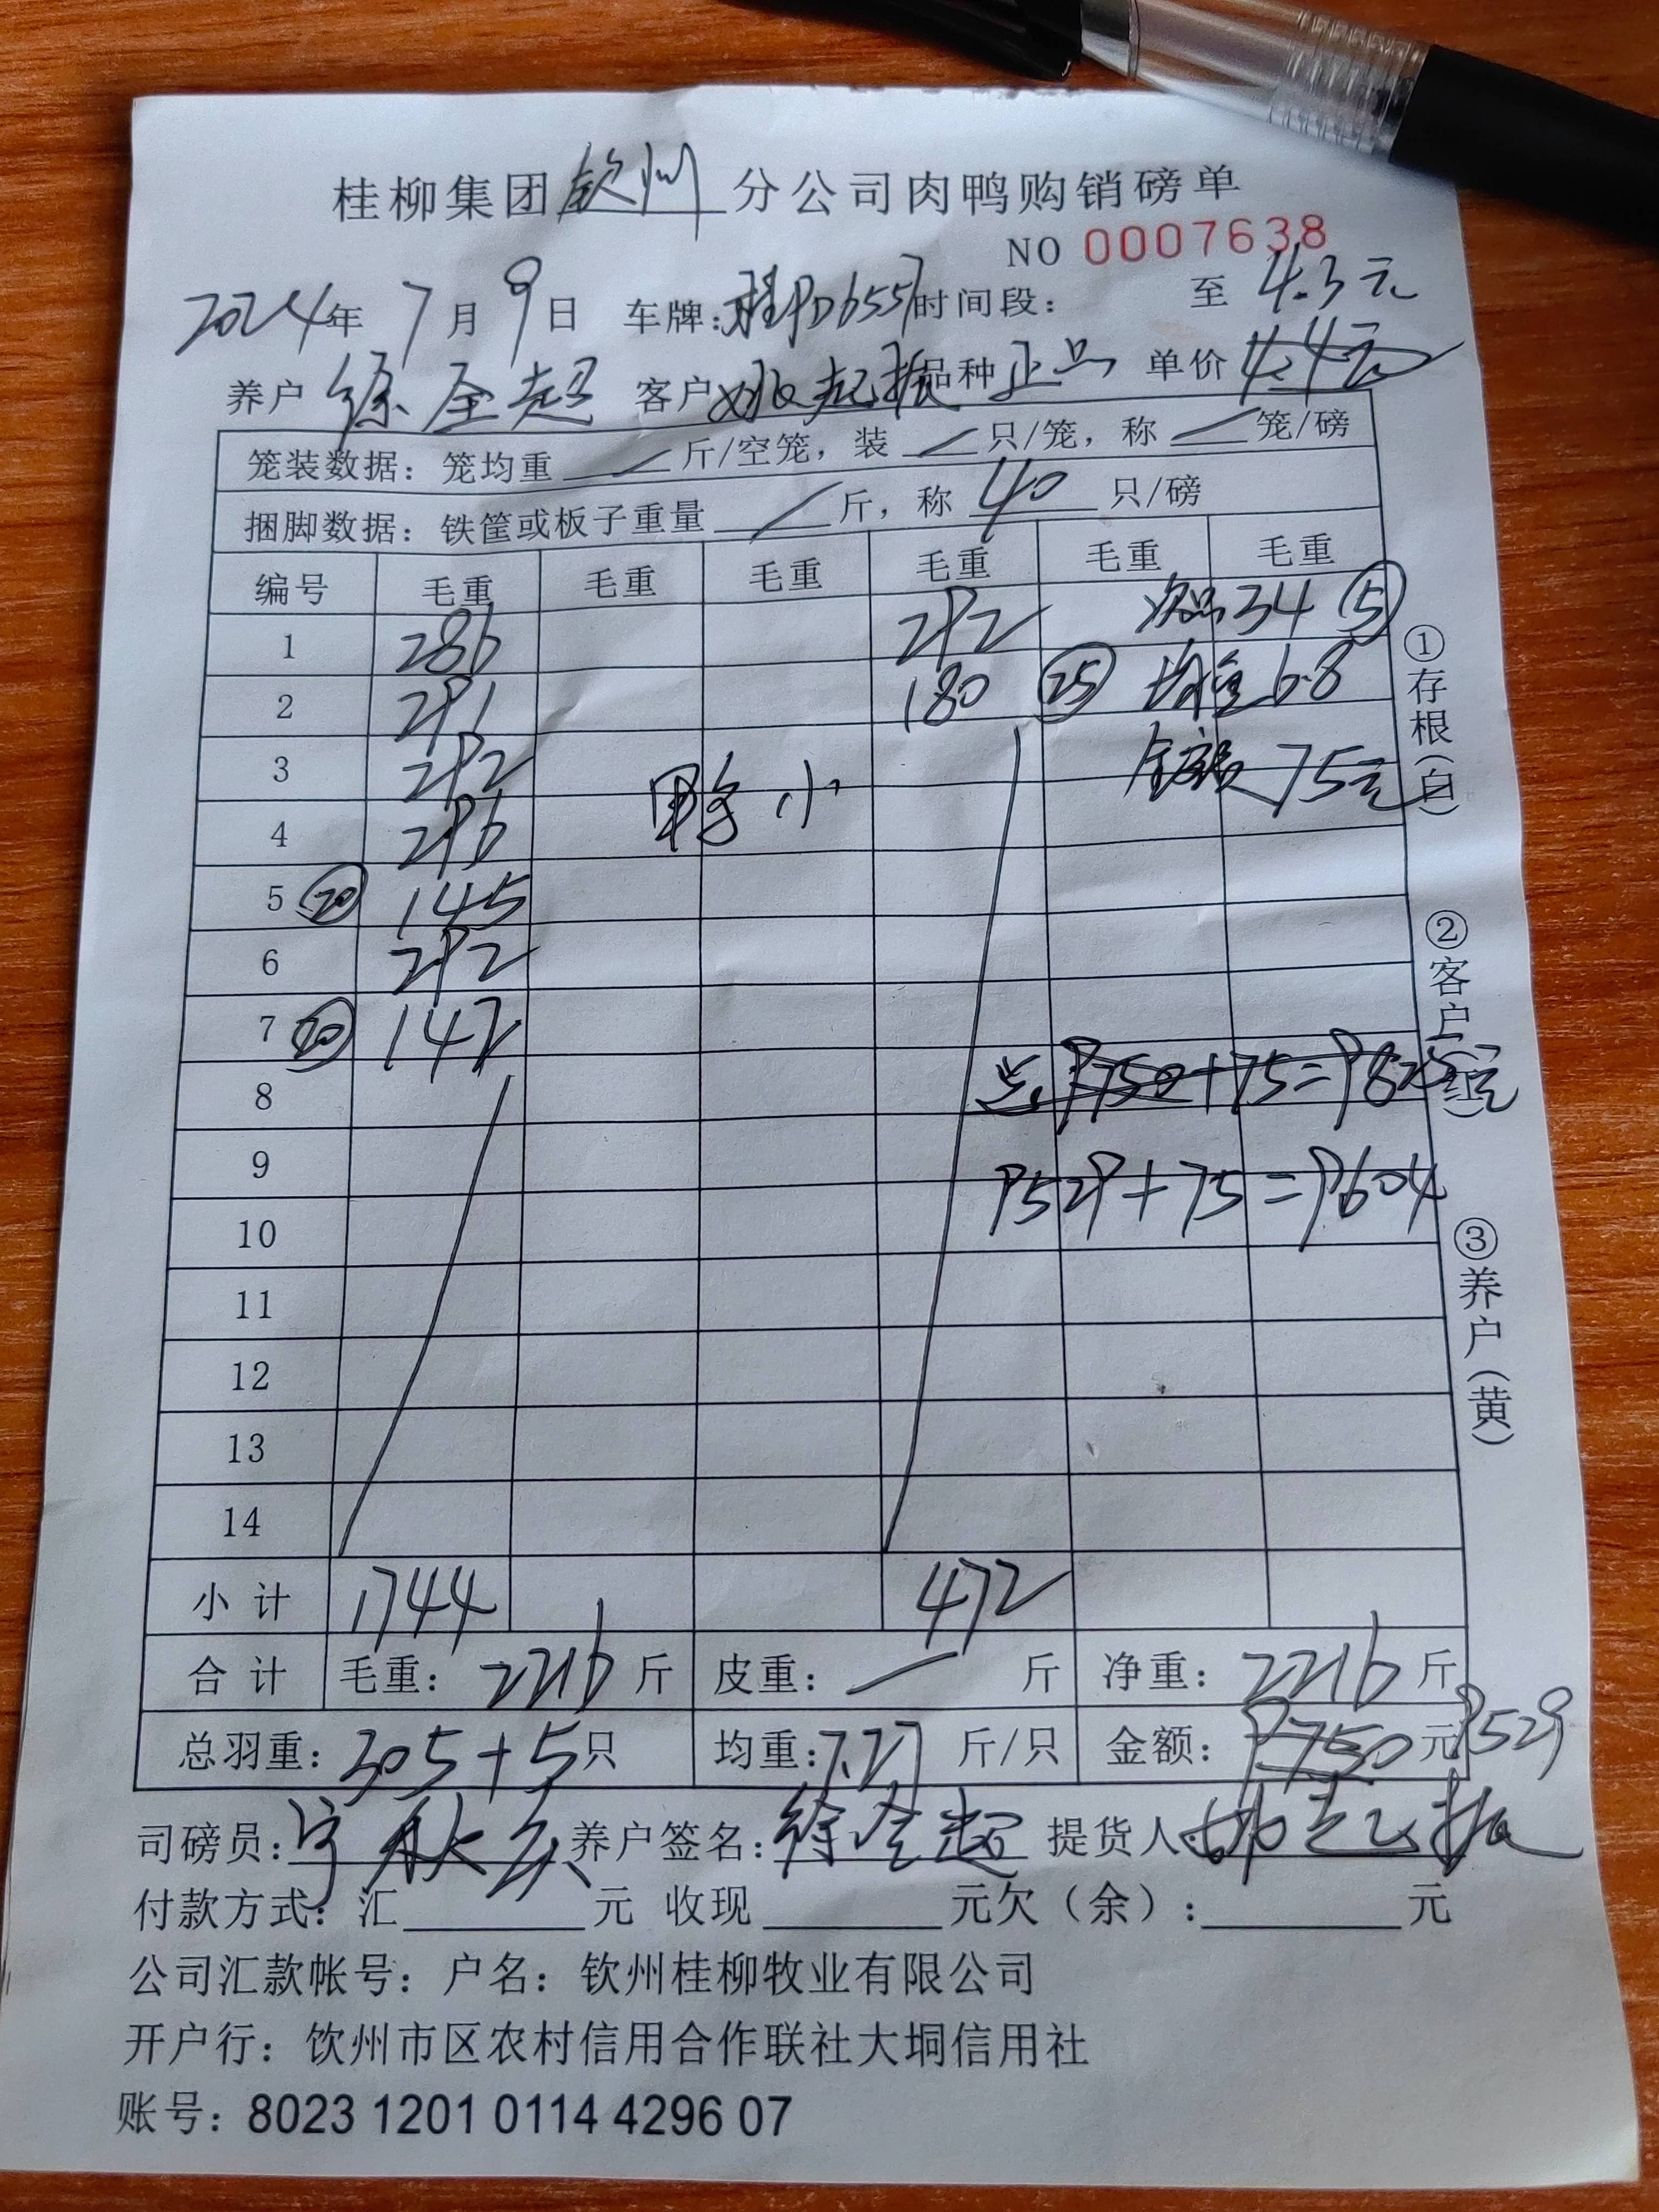 桂柳集团钦州分公司肉鸭购销磅单
NO 0007638
2024年7月9日 车牌:桂PD6557时间段: 至 4.3元
养户 徐全超 客户 姚起振 品种 正品 单价 4.4元
笼装数据: 笼均重 / 斤/空笼, 装 / 只/笼, 称 / 笼/磅
捆脚数据: 铁筐或板子重量 / 斤, 称 40 只/磅
编号 毛重 毛重 毛重 毛重 毛重 毛重
1 286 292 次品34 ⑤
2 291 180 ㉕ 均重6.8
3 292 鸭小 金额75元
4 296
5 ⑳ 145
6 292
7 ⑳ 142
8 总9750+75=9825元
9 9529+75=9604
10
11
12
13
14
小计 1744 472
合计 毛重: 2216斤 皮重: — 斤 净重: 2216斤
总羽重: 305+5只 均重: 7.27 斤/只 金额: 9750元 9529
司磅员: 养户签名: 徐全超 提货人: 姚起振
付款方式: 汇 元 收现 元欠(余): 元
公司汇款帐号: 户名: 钦州桂柳牧业有限公司
开户行: 钦州市区农村信用合作联社大垌信用社
账号: 8023 1201 0114 4296 07
①存根(白)
②客户(红)
③养户(黄)